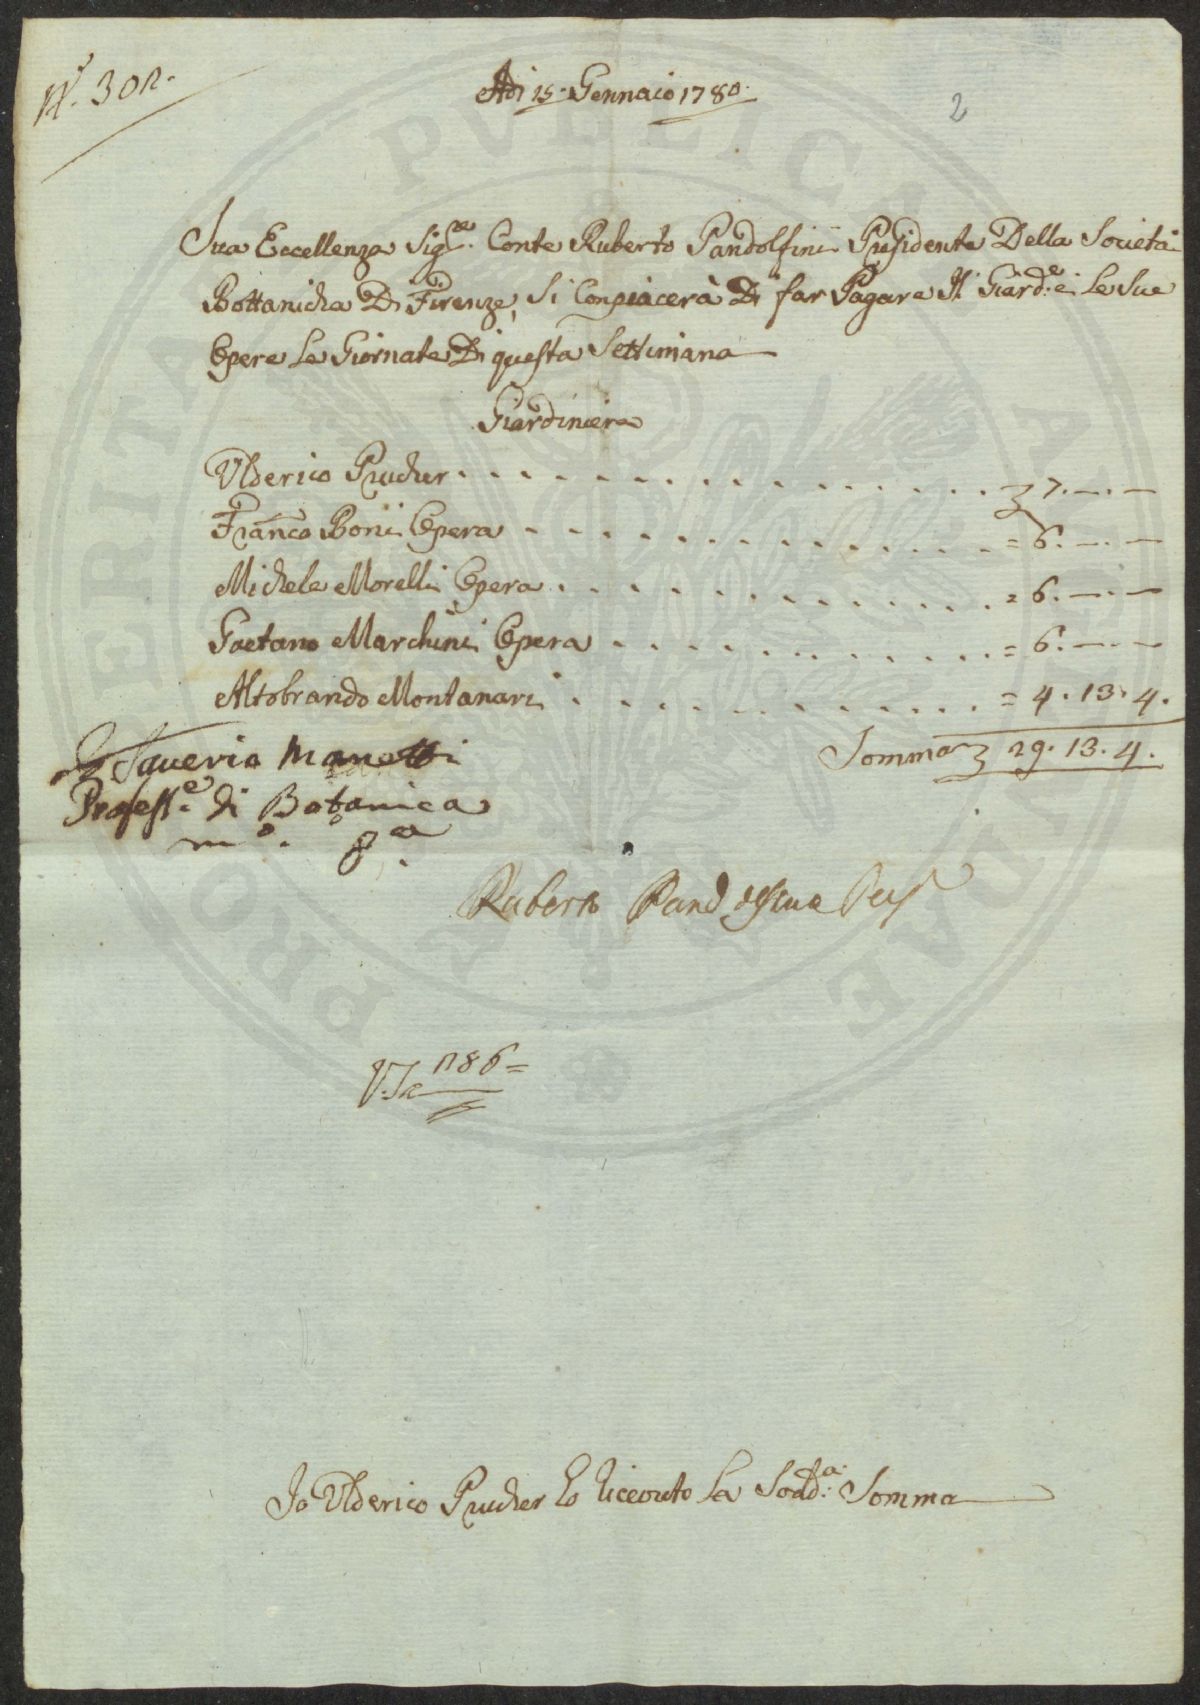 N.º 302.
Adi 15. Gennaio 1780.
2
Sua Eccellenza Sig.re Conte Ruberto Pandolfini Presidente Della Società
Bottanicha Di Firenze, Si Conpiacerà Di far Pagare Il Giard.e e Le Sue
Opere Le Giornate Di questa Settimana
Giardiniere
Ulderico Prucher . . . . . . . . . . . . . . . . £ 7. —. —
Franco Boni Opera . . . . . . . . . . . . . . = 6. —. —
Michele Morelli Opera . . . . . . . . . . . . . = 6. —. —
Gaetano Marchini Opera . . . . . . . . . . . = 6. —. —
Altobrando Montanari . . . . . . . . . . . . = 4. 13. 4.
Somma £ 29. 13. 4.
Saverio Manetti
Profess.e di Botanica
m.o p.a
Ruberto Pand Pres
1186=
Io Ulderico Prucher ho riceuto La Sodd.a Somma
PUBLICAE
PROSPERITATI